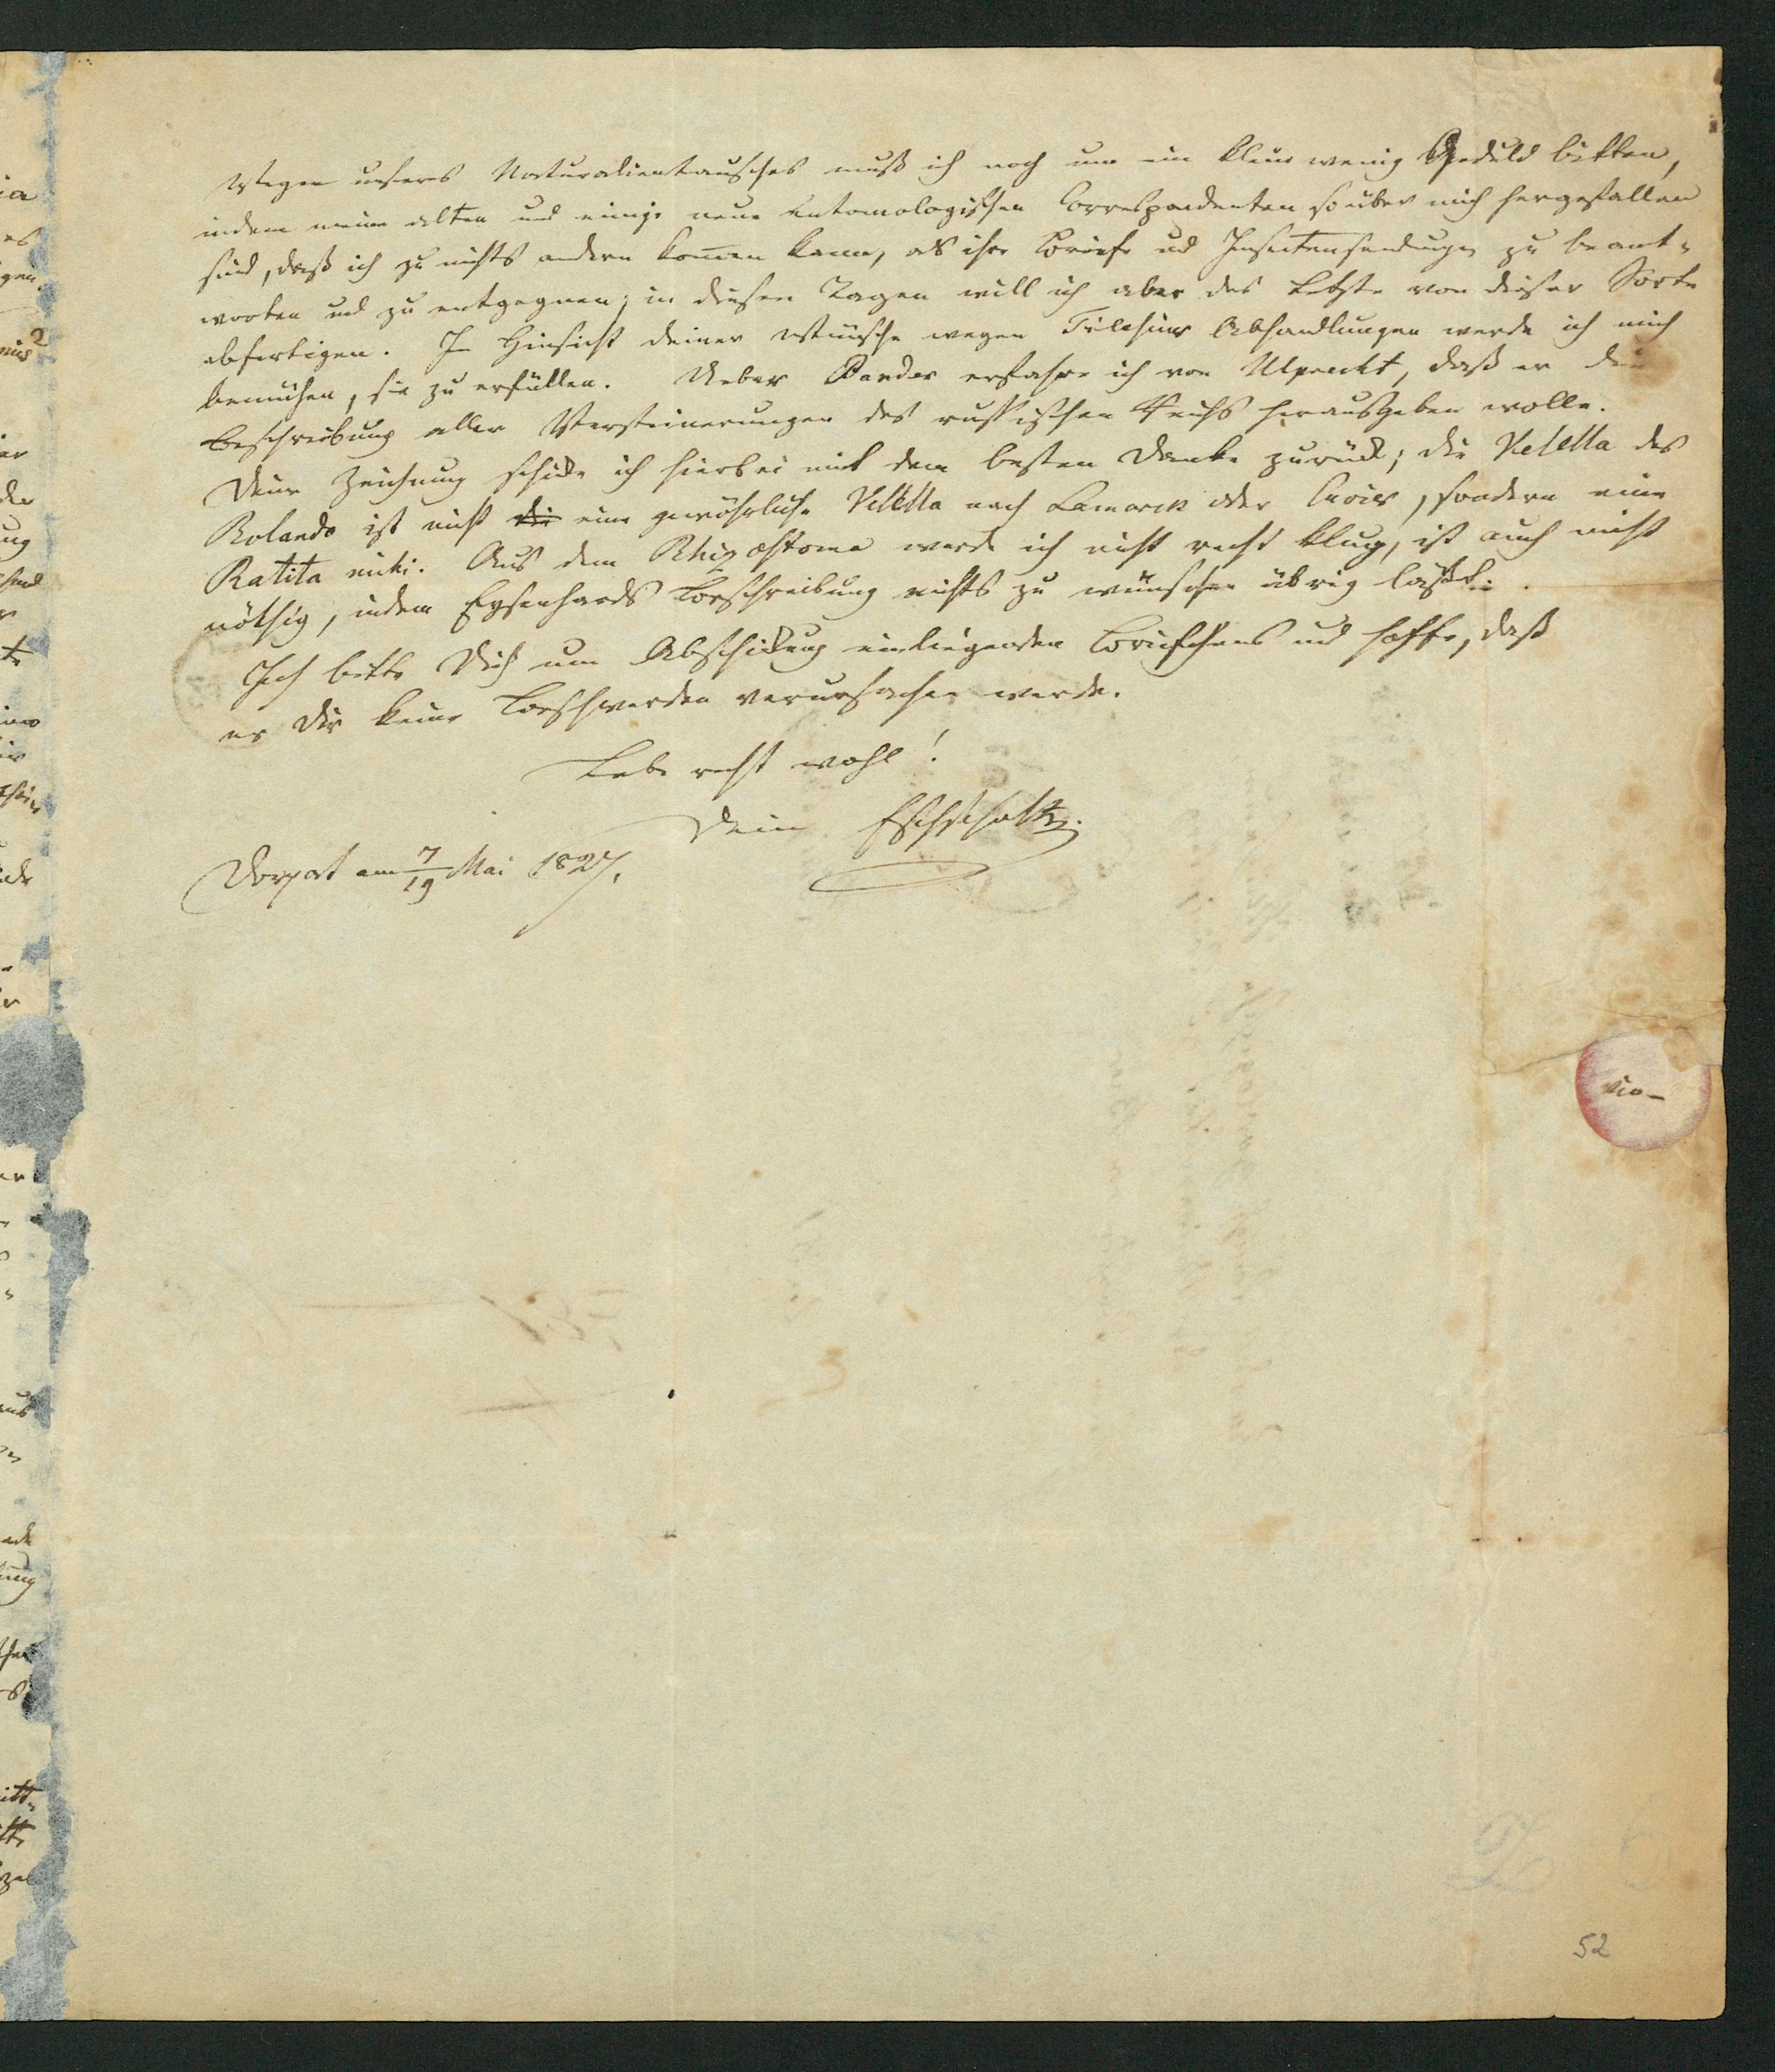 Wegen unseres Naturalientausches muß ich noch um ein klein wenig Geduld bitten,
indem meine alten und einige neue entomologischen Correspondenten so über mich hergefallen
sind, daß ich zu nichts andern kom̄en kann, als ihre Briefe und Insectensendungen zu beant-
worten und zu entgegnen; in diesen Tagen will ich aber das Letzte von dieser Sorte
abfertigen. In Hinsicht deiner Wünsche wegen Tilesius Abhandlungen werde ich mich
bemühen, sie zu erfüllen. Ueber Pander erfahre ich von Ulprecht, daß er die
Beschreibung aller Versteinerungen des russischen Reichs herausgeben wolle.
Deine Zeichnung schicke ich hierbei mit dem besten Danke zurück; die Velella des
Rolando ist nicht die eine gewöhnliche Velella nach Lamarck oder Cuvier, sondern eine
Ratita mihi. Aus dem Rhizostoma werde ich nicht recht klug, ist auch nicht
nöthig, indem Eysenhards Beschreibung nichts zu wünschen übrig läßt.
Ich bitte Dich um Abschickung einliegenden Briefchens und hoffe, daß
es Dir keine Beschwerden verursachen werde.
Lebe recht wohl!
Dein Eschscholtz.
Dorpat am 7/19 Mai 1827.
52